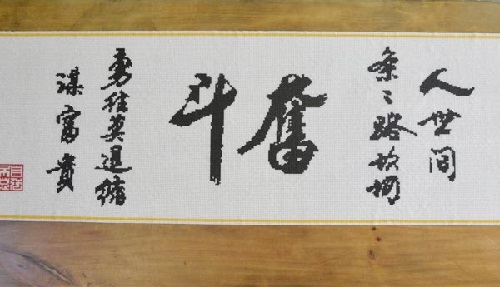 人世间
条々路坎坷
奋斗
勇往莫退缩
谋富贵